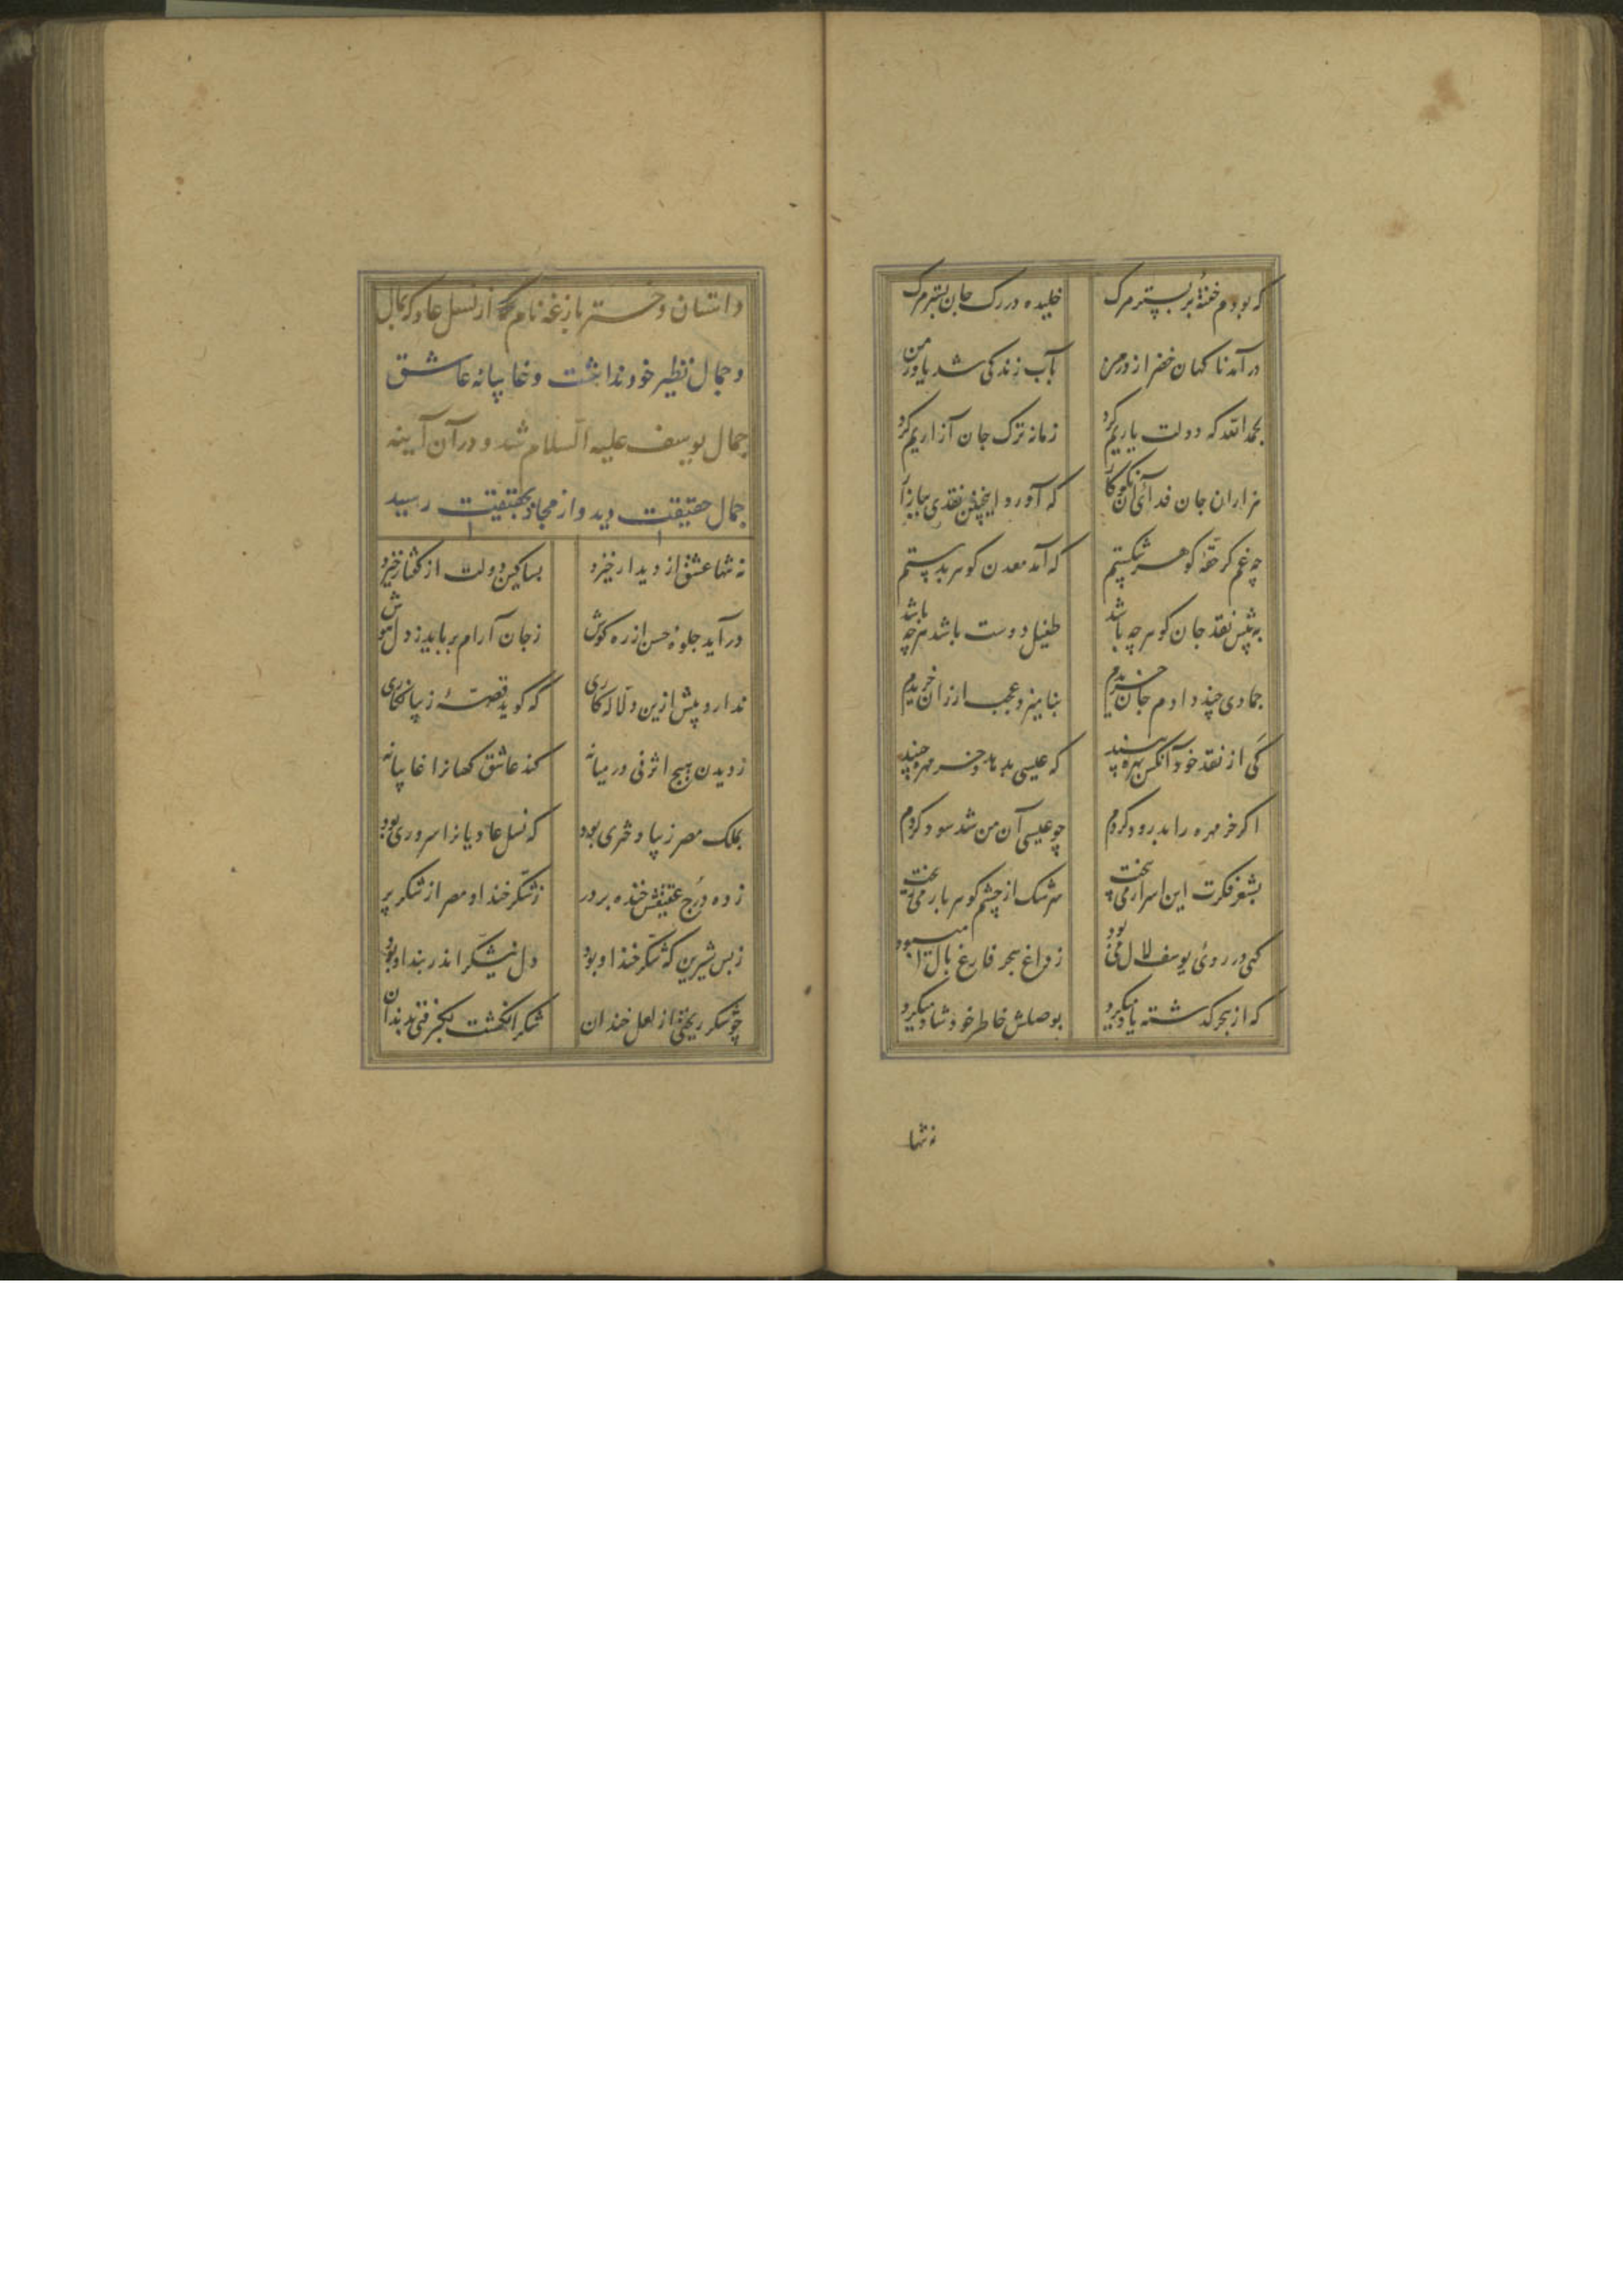 که بودم خفتهٔ بر بستر مرگ خلیده در رگ جان بشتر مرگ
درآمد ناگهان خضر از در من بآب زندگی شد یاور من
بحمدالله که دولت یاریم کرد زمانه ترک جان آزاریم کرد
هزاران جان فدای آن نکوکار که آورد اینچنین نقدی ببازار
چه غم گر حقهٔ گوهر شکستم که آمد معدن گوهر بدستم
به پیش نقد جان گوهر چه باشد طفیل دوست باشد هر چه باشد
جمادی چند دادم جان خریدم بنامیزد عجب ارزان خریدم
کی از نقد خود آنکس بهره بیند که عیسی بدهد و خرمهره چیند
اگر خرمهره را بدرود کردم چو عیسی آن من شد سود کردم
بشعر فکرت این اسرار می بیخت سرشک از چشم گوهربار می ریخت
گهی در روی یوسف لال می بود ز داغ هجر فارغ بال میبود
که از هجر گذشته یاد میکرد بوصلش خاطر خود شاد میکرد
نه تنها
داستان دختر بازغه نام که از نسل عاد که بمال
و جمال نظیر خود نداشت و غایبانه عاشق
جمال یوسف علیه السلام شد و در آن آیینه
جمال حقیقت دید و از مجاز بحقیقت رسید
نه تنها عشق از دیدار خیزد بسا کین دولت از گفتار خیزد
درآید جلوهٔ حسن از ره گوش ز جان آرام برباید ز دل هوش
ندارد پیش ازین دلاله کاری که گوید قصهٔ زیبا نگاری
ز دیدن هیچ اثر نی در میانه کند عاشق کسانرا غایبانه
بملک مصر زیبا دختری بود که نسل عادیانرا سروری بود
زده درج عقیقش خنده بر در ز شکر خند او مصر از شکر پر
ز بس شیرین که شکر خند او بود دل نیشکر اندر بند او بود
چو شکر ریختی از لعل خندان شکر انگشت بگرفتی بدندان